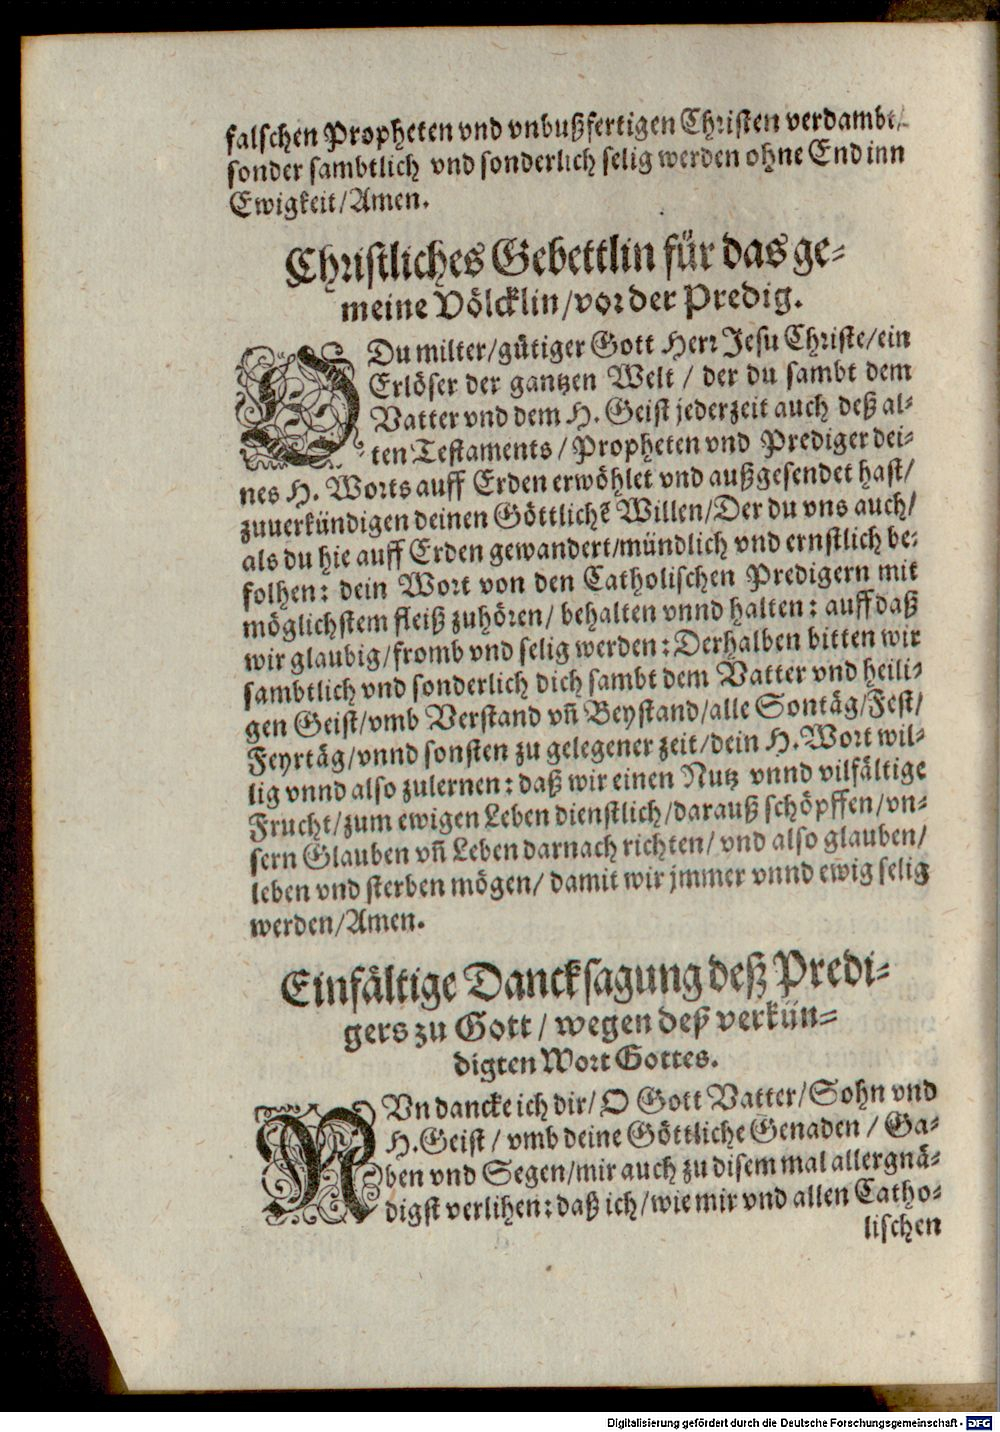 falschen Propheten vnd vnbußfertigen Christen verdambt/
sonder sambtlich vnd sonderlich selig werden ohne End inn
Ewigkeit/Amen.
Christliches Gebettlin für das ge-
meine Völcklin/vor der Predig.
O Du milter/gütiger Gott Herr Jesu Christe/ein
Erlöser der gantzen Welt / der du sambt dem
Vatter vnd dem H. Geist jederzeit auch deß al-
ten Testaments / Propheten vnd Prediger dei-
nes H. Worts auff Erden erwöhlet vnd außgesendet hast/
zuuerkündigen deinen Göttlichẽ Willen/Der du vns auch/
als du hie auff Erden gewandert/mündlich vnd ernstlich be-
folhen: dein Wort von den Catholischen Predigern mit
möglichstem fleiß zuhören/ behalten vnnd halten: auff daß
wir glaubig/fromb vnd selig werden: Derhalben bitten wir
sambtlich vnd sonderlich dich sambt dem Vatter vnd heili-
gen Geist/vmb Verstand vñ Beystand/alle Sontäg/Fest/
Feyrtäg/vnnd sonsten zu gelegener zeit/dein H. Wort wil-
lig vnnd also zulernen: daß wir einen Nutz vnnd vilfältige
Frucht/zum ewigen Leben dienstlich/darauß schöpffen/vn-
sern Glauben vñ Leben darnach richten/ vnd also glauben/
leben vnd sterben mögen/ damit wir jmmer vnnd ewig selig
werden/Amen.
Einfältige Dancksagung deß Predi-
gers zu Gott / wegen deß verkün-
digten Wort Gottes.
NVn dancke ich dir/ O Gott Vatter/Sohn vnd
H. Geist / vmb deine Göttliche Genaden / Ga-
ben vnd Segen/mir auch zu disem mal allergnä-
digst verlihen: daß ich/wie mir vnd allen Catho-
lischen
Digitalisierung gefördert durch die Deutsche Forschungsgemeinschaft - DFG